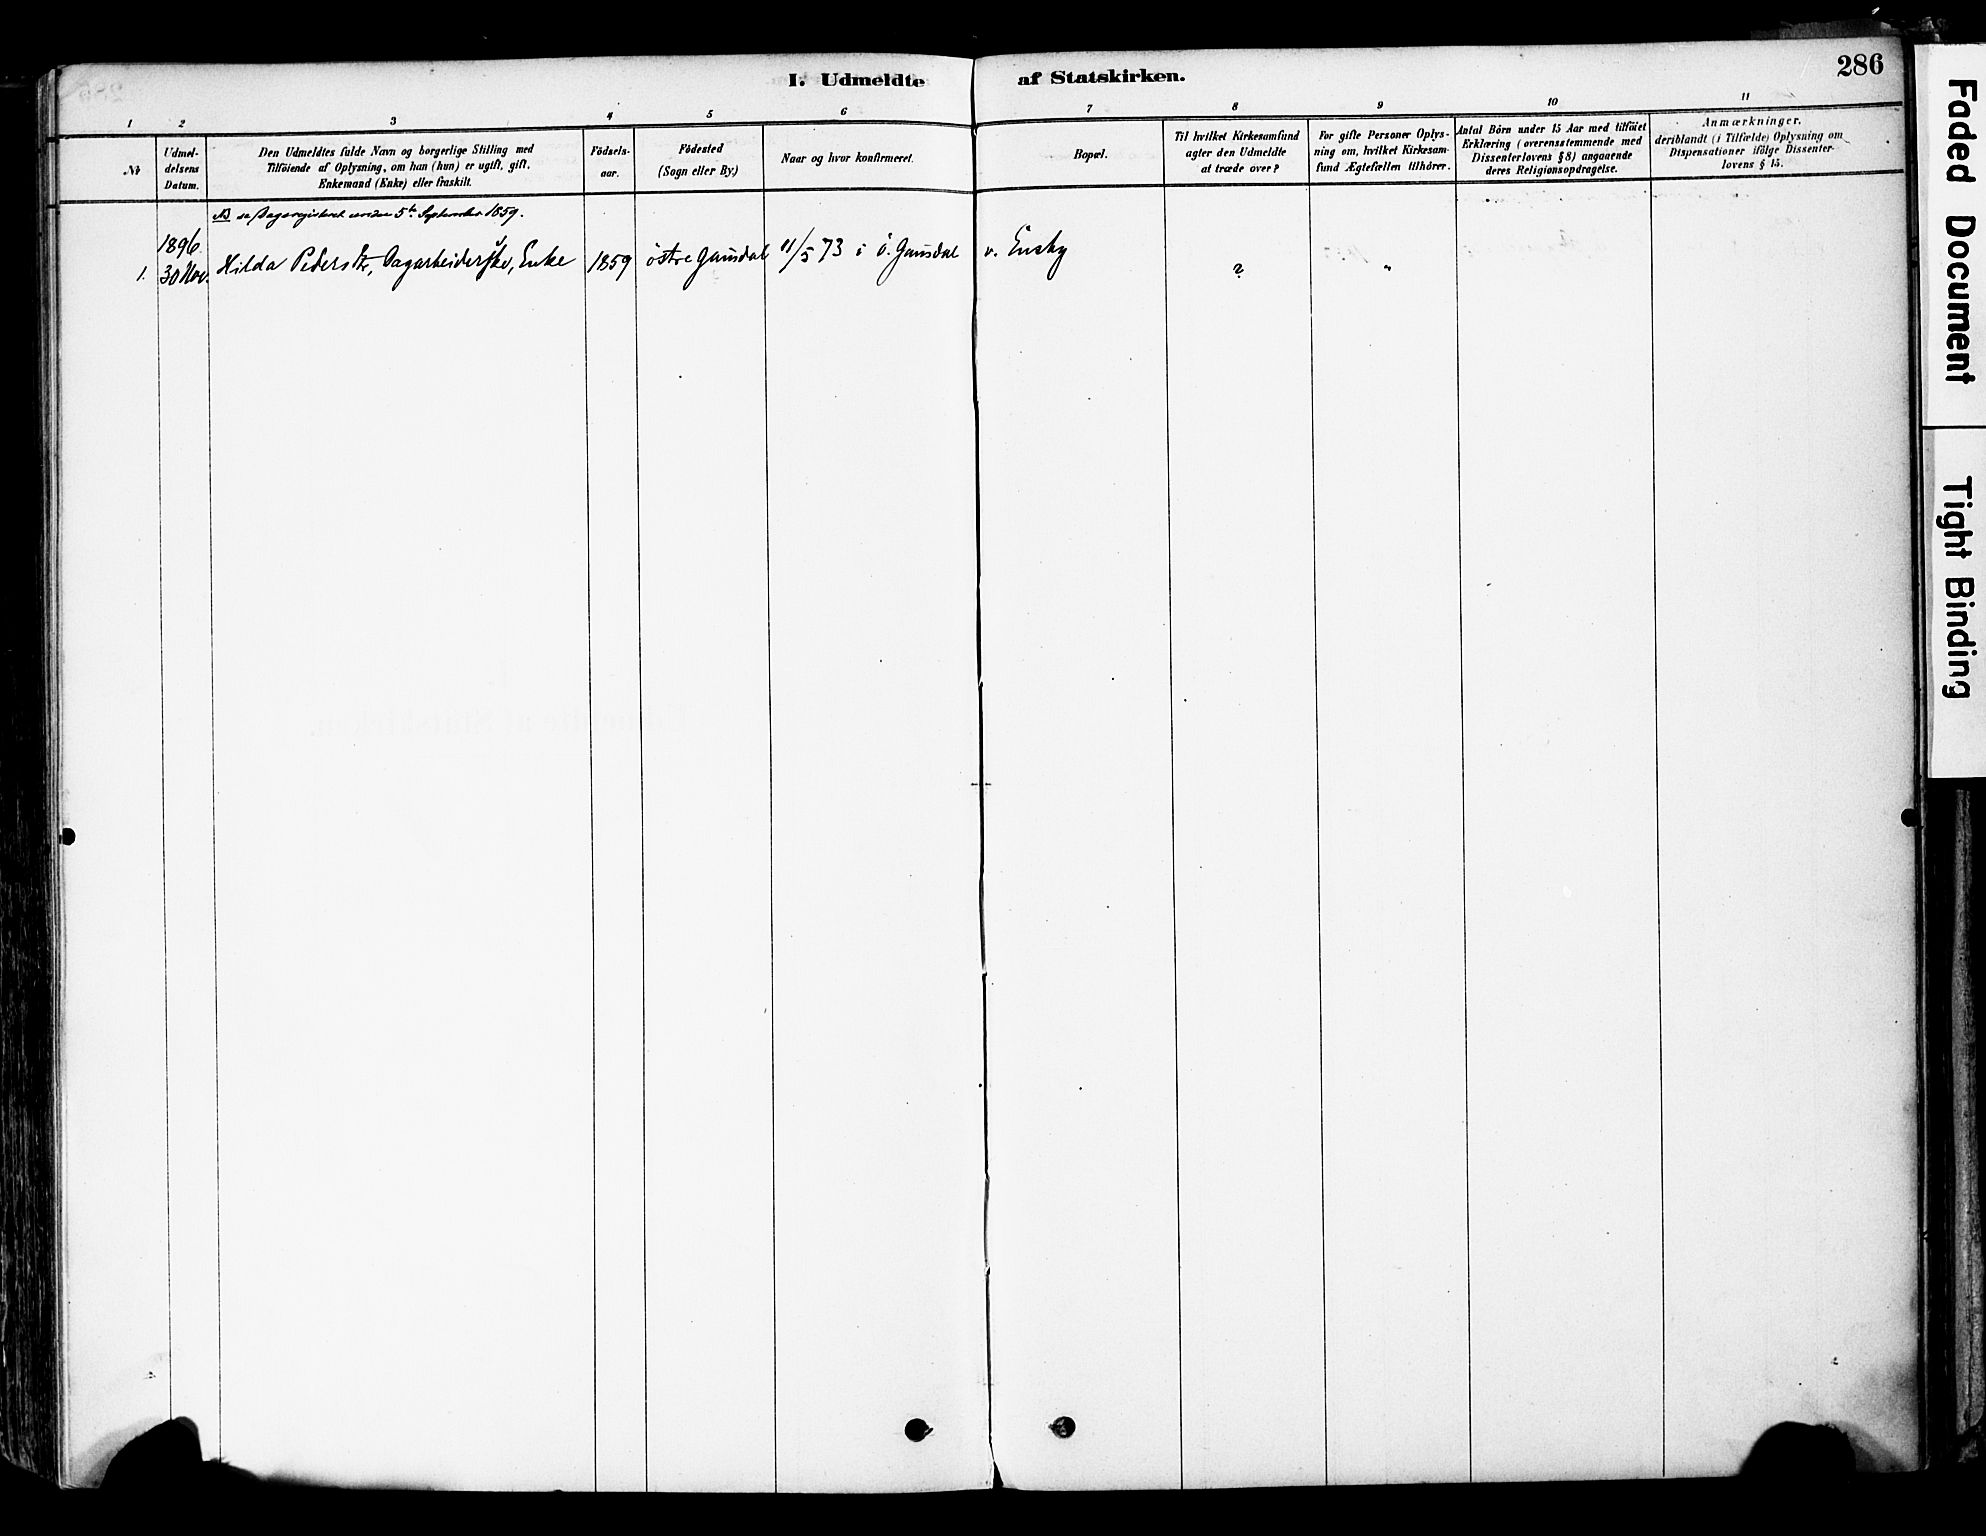 I. Udmeldte af Statskirken.
286
1 2 3 4 5 6 7 8 9 10 11
№
Udmel-
delsens
Datum.
Den Udmeldtes fulde Navn og borgerlige Stilling med
Tilføiende af Oplysning, om han (hun) er ugift, gift,
Enkemand (Enke) eller fraskilt.
Födsels-
aar.
Födested
(Sogn eller By.)
Naar og hvor konfirmeret.
Bopæl.
Til hvilket Kirkesamfund
agter den Udmeldte
at træde over?
For gifte Personer Oplys-
ning om, hvilket Kirkesam-
fund Ægtefællen tilhörer.
Antal Börn under 15 Aar med tilföiet
Erklæring (overensstemmende med
Dissenterlovens § 8) angaaende
deres Religionsopdragelse.
Anmærkninger,
deriblandt (i Tilfælde) Oplysning om
Dispensationer ifölge Dissenter-
lovens § 15.
NB se Dagsregisteret under 5te September 1859.
1896
1. 30 Nov. Hilda Pedersdtr, Dagarbeiderske, Enke 1859 östre Gausdal 11/5 73 i ö. Gausdal v. Ensby ? "
Faded Document
Tight Binding